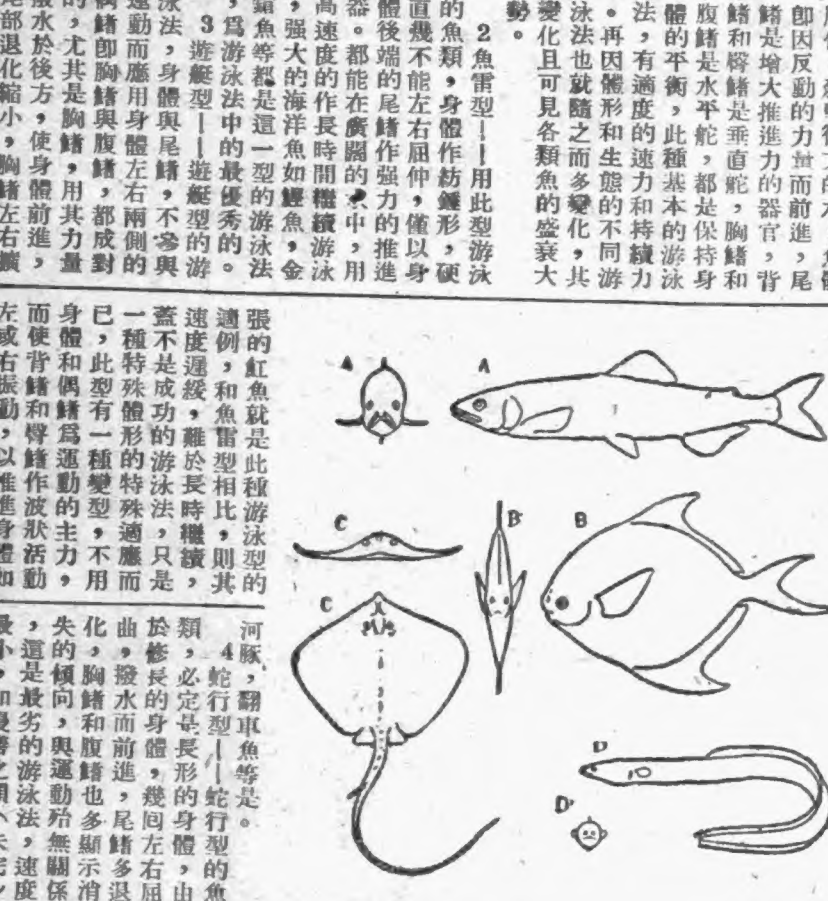 的水，魚體
卽因反動的力量而前進，尾
鰭是增大推進力的器官，背
鰭和臀鰭是垂直舵，胸鰭和
腹鰭是水平舵，都是保持身
體的平衡，此種基本的游泳
法，有適度的速力和持續力
。再因體形和生態的不同游
泳法也就隨之而多變化，其
變化且可見各類魚的盛衰大
勢。
2魚雷型——用此型游泳
的魚類，身體作紡錘形，硬
直幾不能左右屈伸，僅以身
體後端的尾鰭作强力的推進
器。都能在廣闊的水中，用
高速度的作長時間繼續游泳
，强大的海洋魚如鰹魚，金
鎗魚等都是這一型的游泳法
，爲游泳法中的最優秀的。
3遊艇型——遊艇型的游
泳法，身體與尾鰭，不參與
運動而應用身體左右兩側的
偶鰭卽胸鰭與腹鰭，都成對
的，尤其是胸鰭，用其力量
撥水於後方，使身體前進，
尾部退化縮小，胸鰭左右擴
張的魟魚就是此種游泳型的
適例，和魚雷型相比，則其
速度遲緩，難於長時繼續，
蓋不是成功的游泳法，只是
一種特殊體形的特殊適應而
已，此型有一種變型，不用
身體和偶鰭爲運動的主力，
而使背鰭和臀鰭作波狀活動
左或右振動，以推進身體如
河豚，翻車魚等是。
4蛇行型——蛇行型的魚
類，必定是長形的身體，由
於修長的身體，幾囘左右屈
曲，撥水而前進，尾鰭多退
化，胸鰭和腹鰭也多顯示消
失的傾向，與運動殆無關係
，這是最劣的游泳法，速度
最小，如鰻
A
A
B
B'
C
C
D
D'